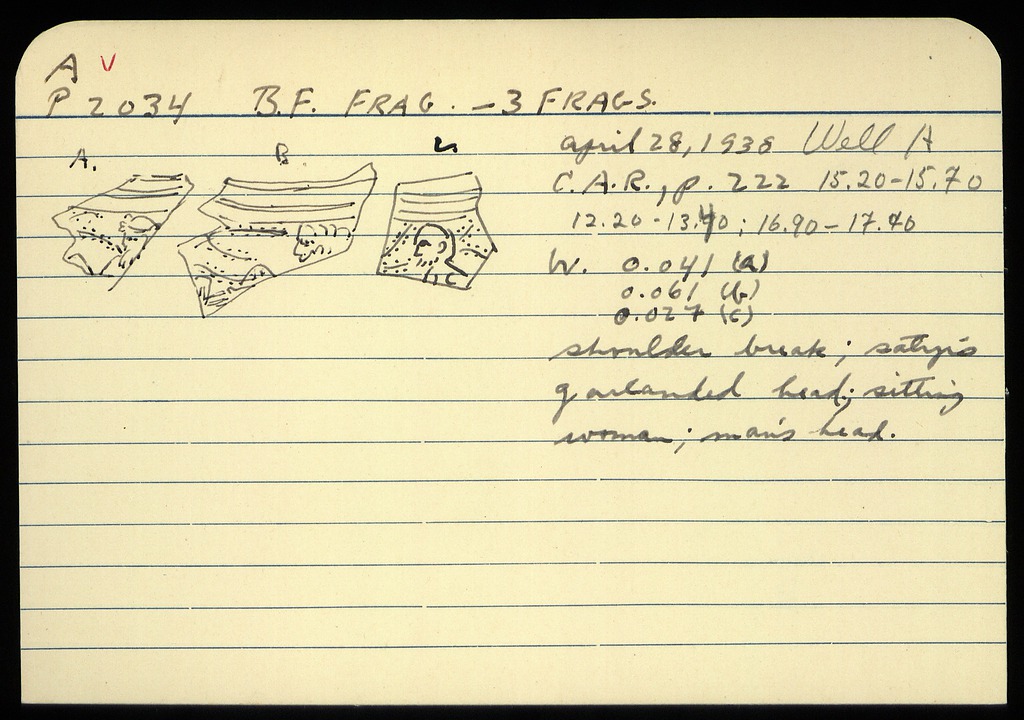 A V
P 2034 B.F. FRAG. - 3 FRAGS.
april 28, 1938 Well A
A. B.
C.A.R., p. 222 15.20-15.70
12.20-13.40; 16.90-17.40
W. 0.041 (a)
0.061 (b)
0.027 (c)
shoulder break; satyr's
garlanded head; sitting
woman; man's head.